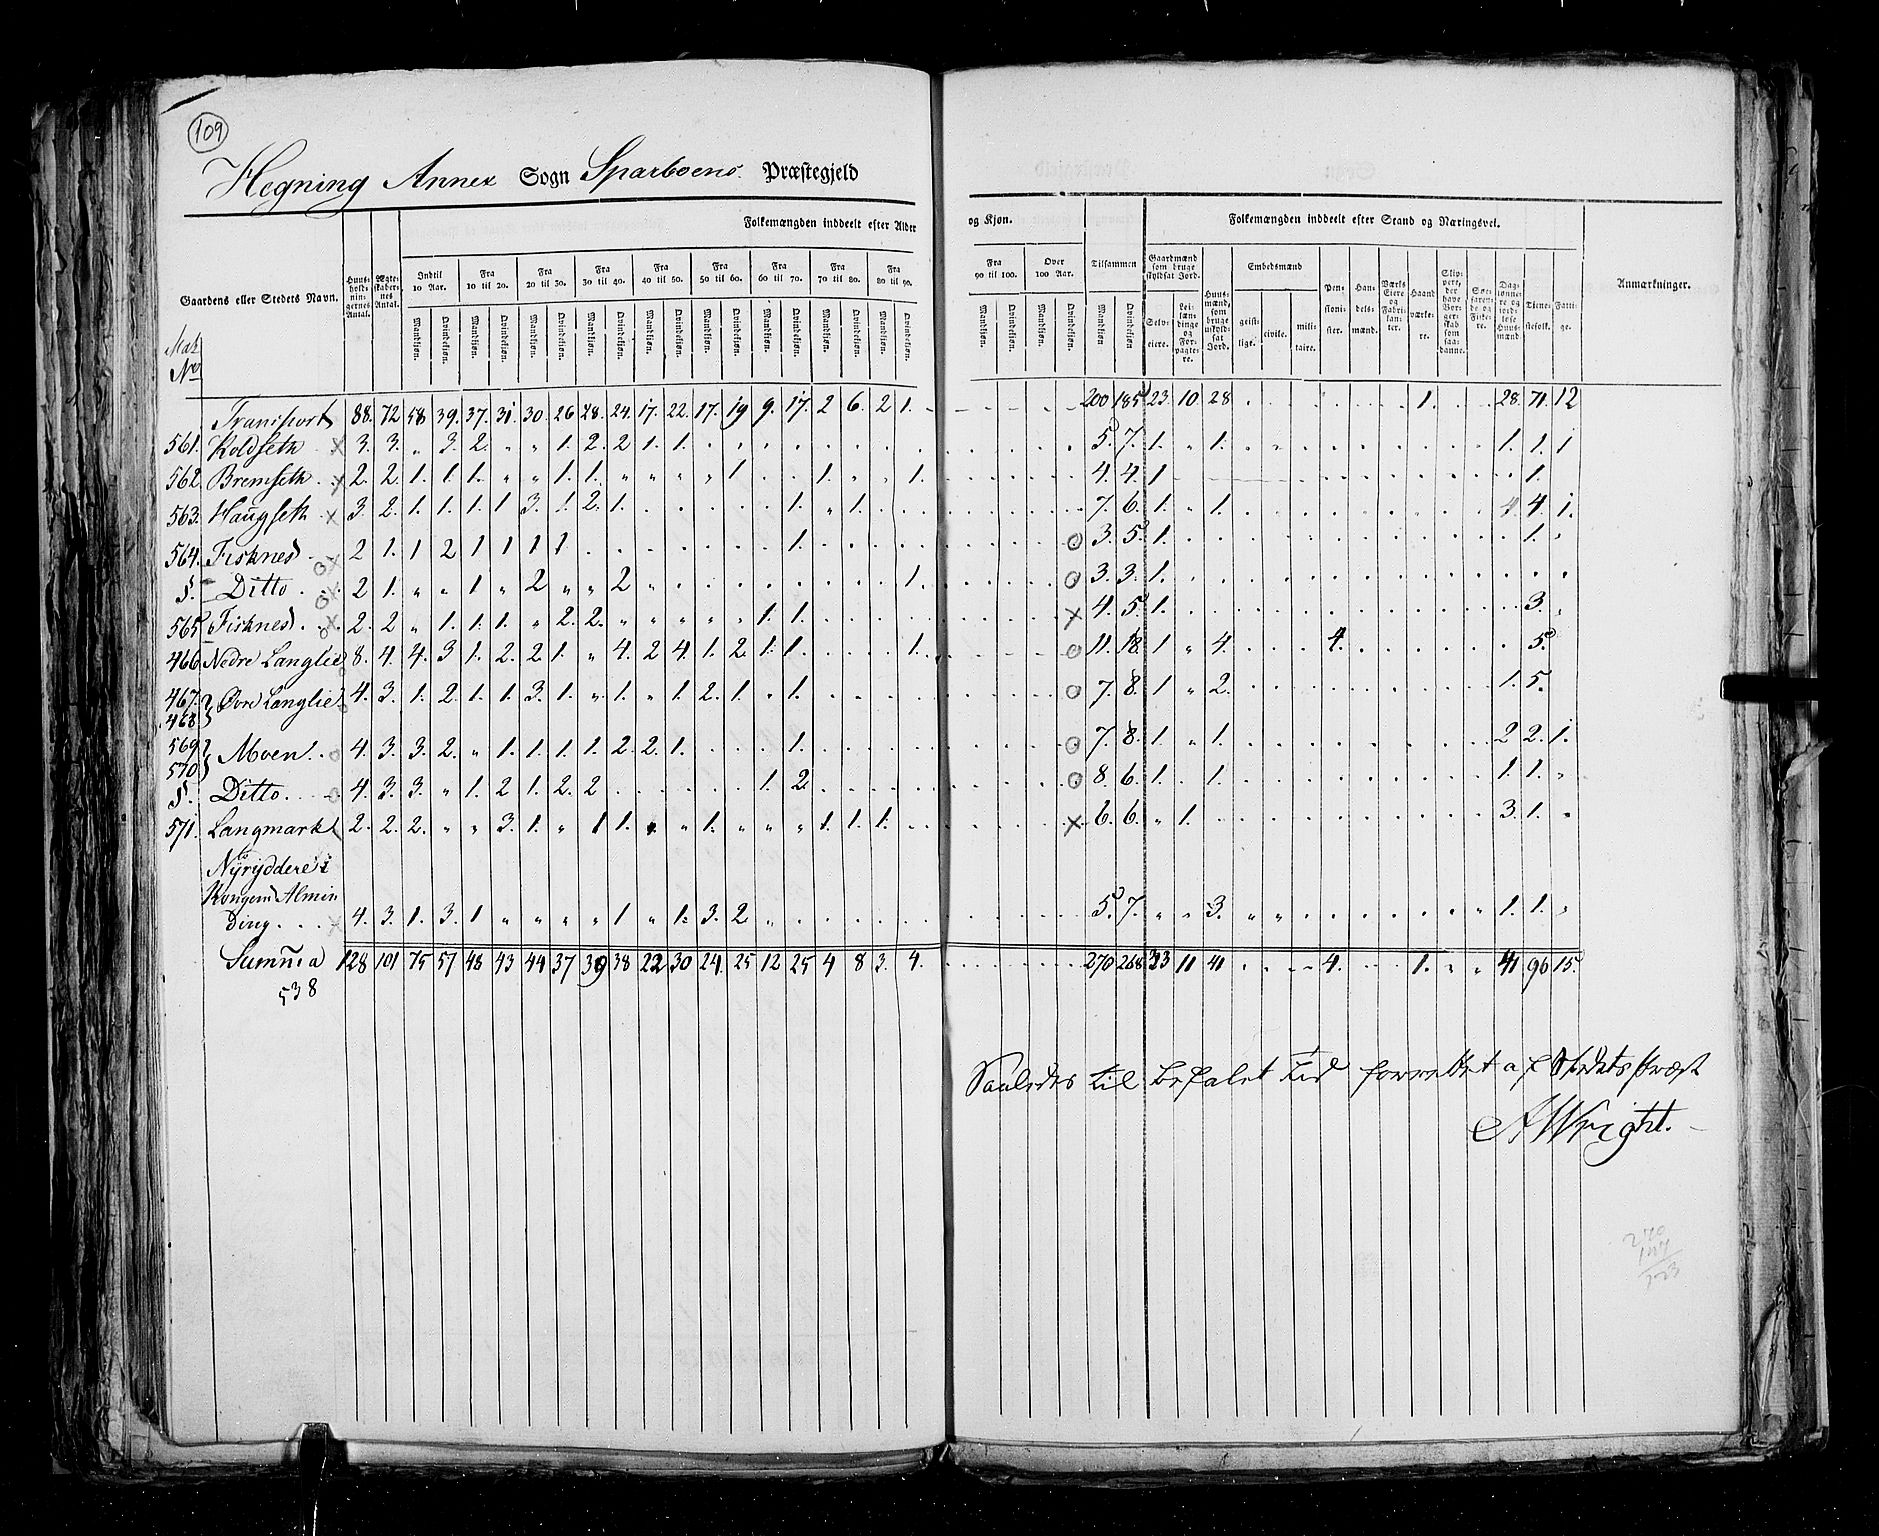 109
Hegning Annex Sogn Sparboens Præstegjeld
Folkemængden inddeelt efter Alder og Kjøn. Tilsammen Folkemængden inddeelt efter Stand og Næringsvei. Anmærkninger.
Gaardens eller Stedets Navn. Huusholdningernes Antal. Ægteskabernes Antal. Indtil 10 Aar. Fra 10 til 20. Fra 20 til 30. Fra 30 til 40. Fra 40 til 50. Fra 50 til 60. Fra 60 til 70. Fra 70 til 80. Fra 80 til 90. Fra 90 til 100. Over 100 Aar.
Gaardmænd som bruge skyldsat Jord. Selveiere. Leilændinge og Forpagtere. Huusmænd, som bruge uskyldsat Jord. Embedsmænd geistlige. civile. militaire. Pensionister. Handelsmænd. Værks Eiere og Fabrikanter. Haandværkere. Slippere, der have Borgerskab som saadanne. Søefarende og Fiskere. Daglønnere og jordløse Huusmænd. Tienestefolk. Fattige.
Mandkjøn. Qvindekjøn. Mandkjøn. Qvindekjøn. Mandkjøn. Qvindekjøn. Mandkjøn. Qvindekjøn. Mandkjøn. Qvindekjøn. Mandkjøn. Qvindekjøn. Mandkjøn. Qvindekjøn. Mandkjøn. Qvindekjøn. Mandkjøn. Qvindekjøn. Mandkjøn. Qvindekjøn. Mandkjøn. Qvindekjøn. Mandkjøn Qvindekjøn.
Mat. No
Transport 88. 72 58 39. 37. 31. 30. 26 28. 24. 17. 22. 17. 19 9. 17. 2 6. 2 1. 200 185 23. 10 28 1. 28. 71. 12
561. Koldseth x 3. 3. " 3. 2. " " 1. 2. 2 1. 1. 5. 7. 1. " 1. 1. 1. 1
562. Bremseth x 2. 2. 1. 1. 1. " " 1. 1. " " " " 1 1. 1. 4. 4. 1 1.
563. Haugseth x 3. 2. 1. 1. 1. 1 3. 1. 2. 1. 1. " 1. 7. 6. 1. " 1. 4. 4. 1.
564. Fisknes ox 2 1. 1 2 1 1 1 1 1. o 3. 5. 1. 1.
§. Ditto ox 2 1. " " 1 " 2 " " 2 1. o 3. 3. 1.
565 Fisknes x 2. 2 " 1. 1. 1. " 2. 2. " " " " " 1. 1. x 4. 5. 1. 3.
466. Nedre Langlie o 8. 4. 4. 3 1. 2. 2. 1. " 4. 2 4. 1. 2. 1. 1. 1. o 11. 18. 1 " 4. 4. 5.
467. 468. Øvre Langlie o 4. 3. 1. 2. 1. 1. 3. 1. " 1. " 1. 2. 1. " 1. o 7. 8. 1 " 2. 1. 5.
569 570 Moen o 4. 3. 3. 2. " 1. 1. 1. 1. 2. 2. 1. 1. o 7. 8. 1. " 1. 2 2. 1.
§. Ditto o 4. 3. 3. " 1. 2 1. 2. 2 1. 2. o 8. 6. 1. 1. 1. 1.
571. Langmark 2. 2. 2. " " 3. 1. " 1 1. " 1. " " " 1. 1. 1. x 6. 6. " 1. 3. 1.
Nÿrÿddere i
Kongens Almin
ding x 4. 3. 1. 3. 1 " " " " 1 " 1. 3. 2 5. 7. " " 3. 1. 1.
Summa 128 101 75 57 48 43 44 37 39 38 22 30 24 25 12 25 4 8 3. 4. 270 268 33 11 41 4. 1. 41 96 15.
538
Saaledes til befalet tid forrettet af Stedets Præst
A Wright.